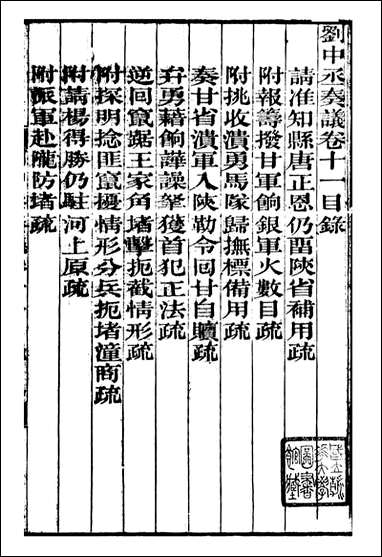 劉中丞奏議卷十一目錄
請准知縣唐正恩仍畱陝省補用疏
附報籌撥甘軍餉銀軍火數目疏
附挑收潰勇馬隊歸撫標備用疏
奏甘省潰軍入陝勒令回甘自贖疏
弁勇藉餉譁譟拏獲首犯正法疏
逆回竄踞王家角堵擊扼截情形疏
附探明捻匪竄擾情形分兵扼堵潼商疏
附請楊得勝仍駐河上原疏
附派軍赴隴防堵疏